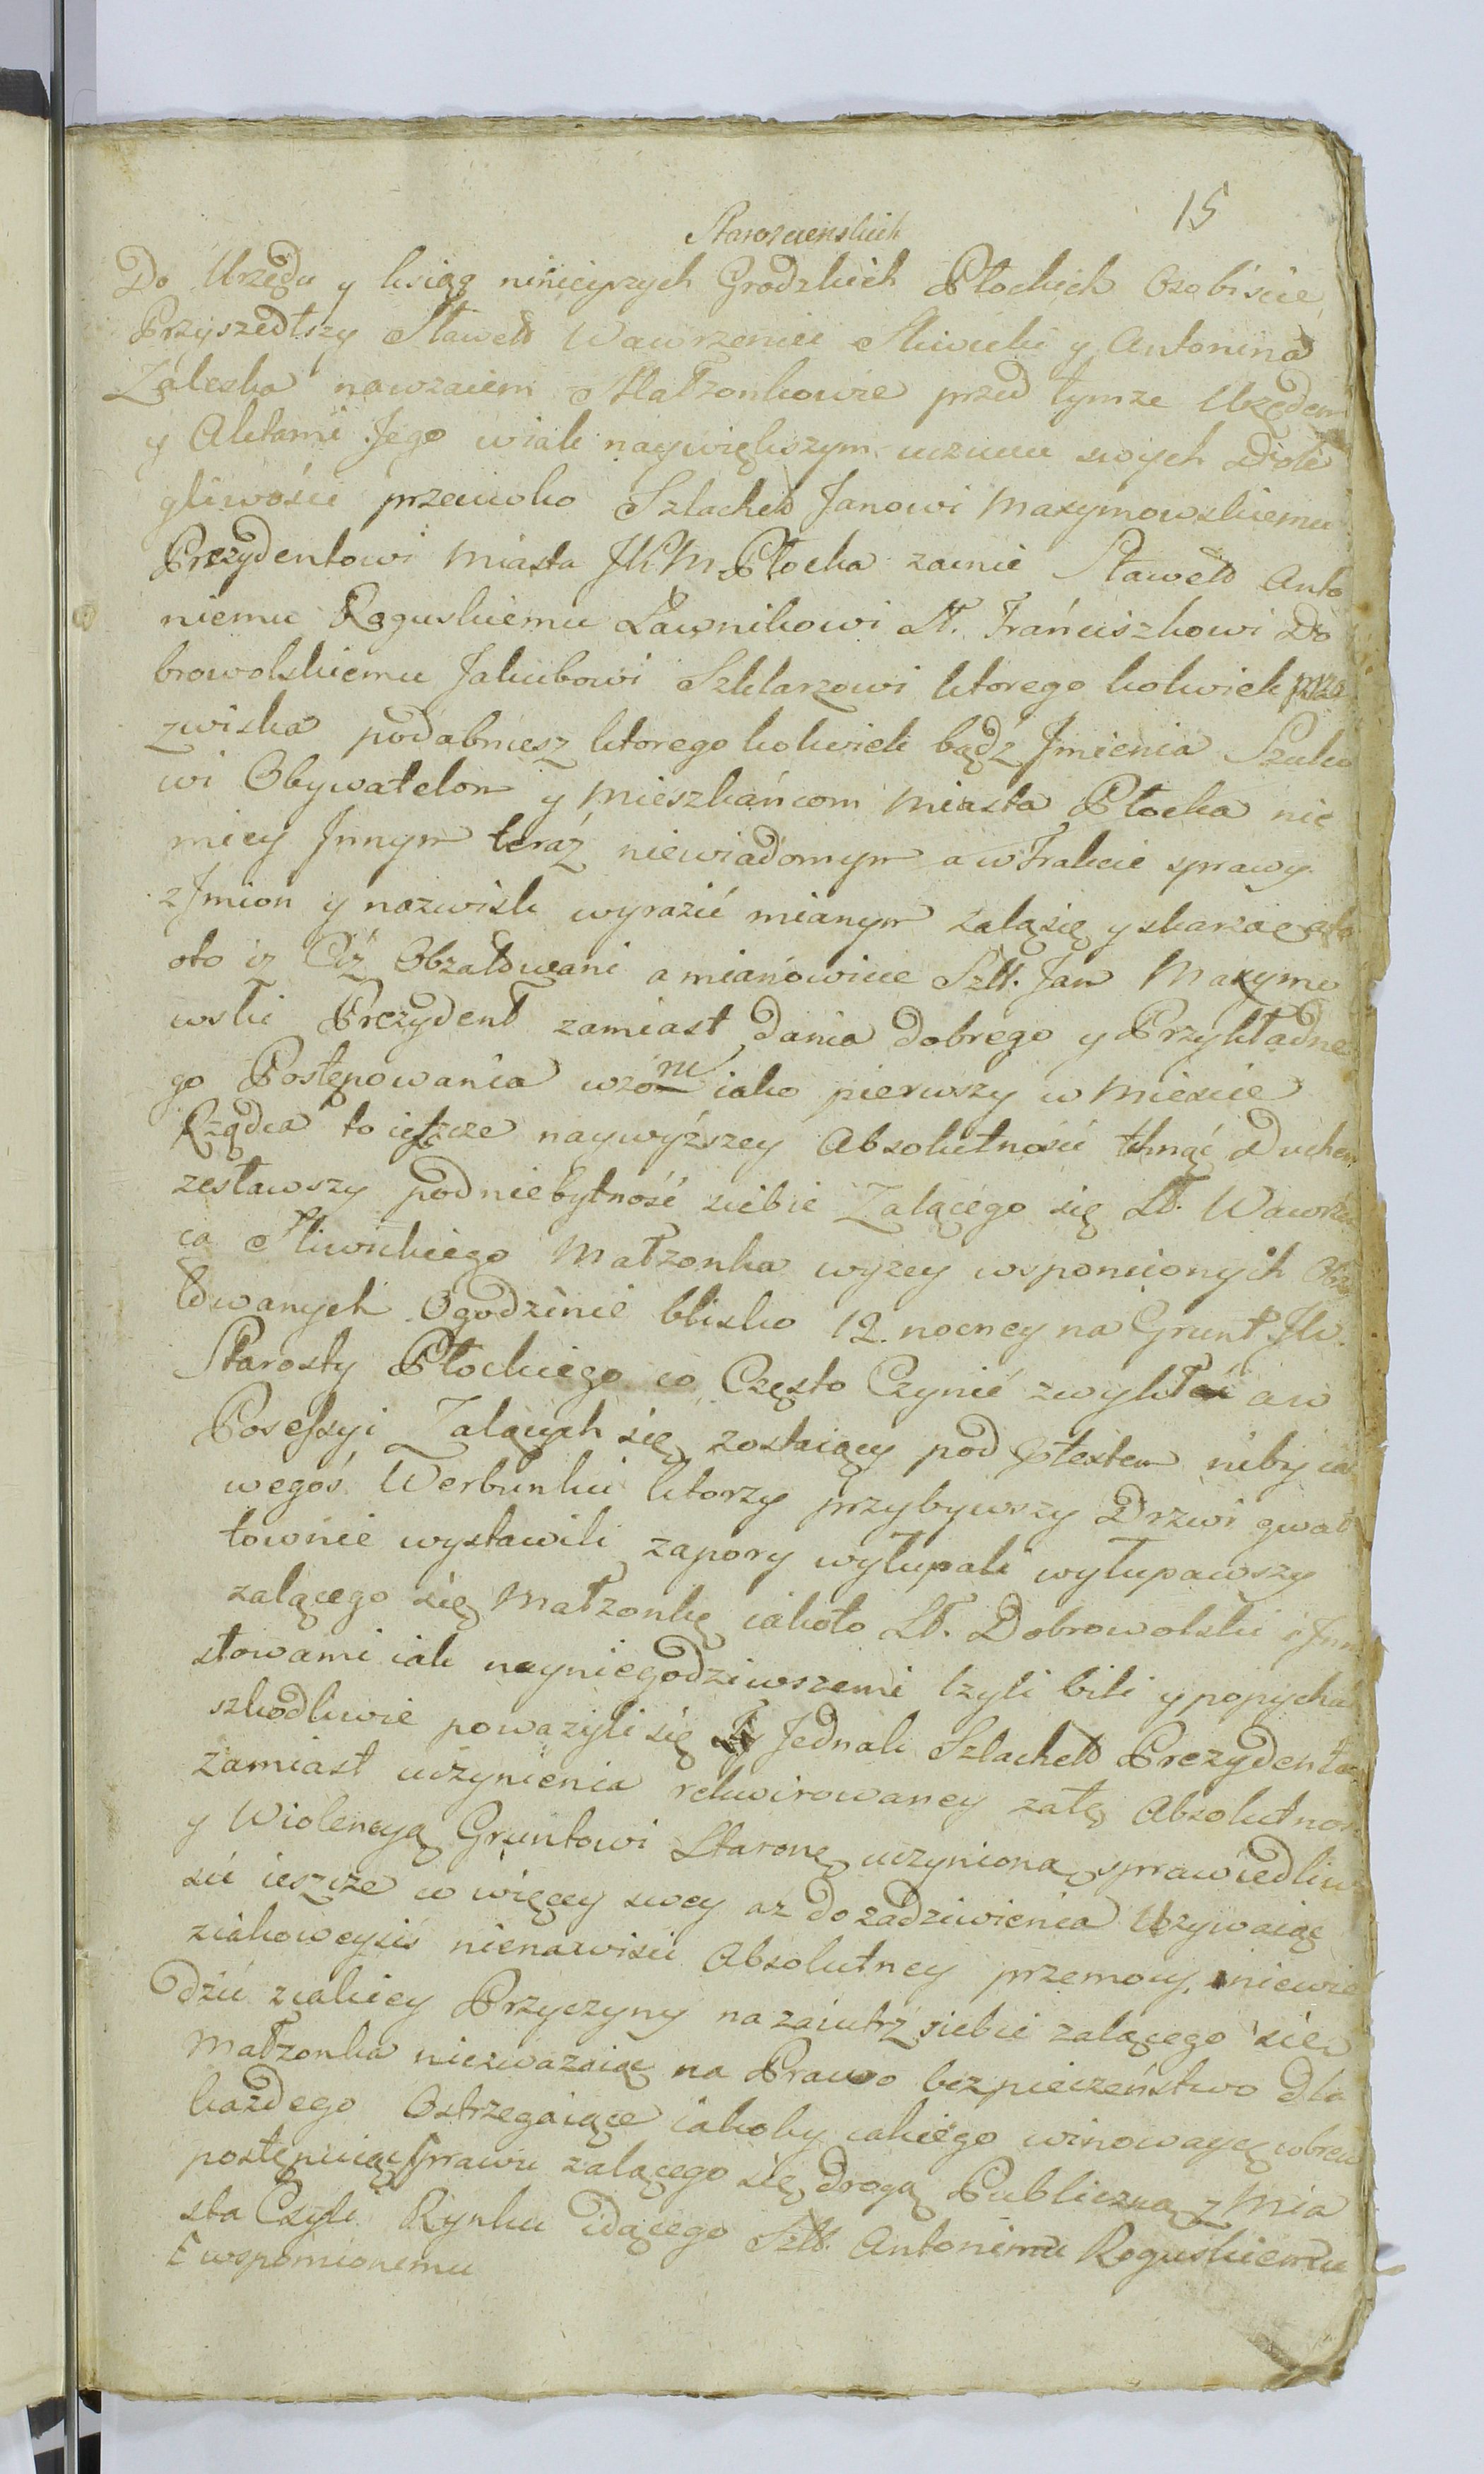 15
Starozrenskich
Do Urzędu y ksiąg ninieyszych Grodzkich Płockich Osobiscie
Przyszedłszy Sławetd Wawrzeniec Sliwicki y Antonina
Zaleska nawzaiem Małzonkowie przed tymze Urzędem
y Aktami Jego w iak naywiększym uczuciu swych Dole
gliwości przeciwko Szlachetd Janowi Maxymowskiemu
Prezydentowi Miasta JKM Płocka zaś nie Sławetd Anto
niemu Roguskiemu Ławnikowi St. Franciszkowi Do
browolskiemu Jakubowi Szklarzowi ktorego kolwiek prze
zwiska podobniesz ktorego kolwiek bądź Jmienia Szulco
wi Obywatelom y Mieszkańcom Miasta Płocka nie
mniey Jnnym teraz niewiadomym a w Trakcie sprawy
z Jmion y nazwisk wyrazić mianym zalą się y skarzą a to
oto iz Ciż Obzałowani a mianowicie Szlt. Jan Maxymo
wski Prezydent zamiast dania dobrego y Przykładne
go Postępowania wzoru iako pierwszy w Miescie
Rządca to ieszcze naywyższey Absolutnosci tchnąc Duchem
zesławszy pod niebytność siebie Zalącego się St. Wawrzeń
ca Sliwickiego Małzonka wyzey wspomionych Obza
łowanych O godzinie blisko 12 nocney na Grunt JW.
Starosty Płockiego co Często Czynić zwykł a w
Possessyi Zalących się zostaiący pod pretextem niby ia
wegoś Werbunku ktorzy przybywszy Drzwi gwał
townie wystawili zapory wyłupali wyłupawszy
zalącego się Małzonkę iakoto St. Dobrowolski i Jnni
słowami iak nayniegodziwszemi lzyli bili y popychać
szkodliwie powazyli się Jednak Szlachetd Prezydent
zamiast uczynienia rekwirowaney za tę Absolutnosc
y Wiolencyą Gruntowi Starone uczynioną sprawiedliwo
sci ieszcze w więcey swey az do zadziwienia Uzywaiąc
z iakoweysis nienawisci Absolutney przemocy, niewie
dzić z iakiey Przyczyny nazaiutrz siebie zalącego się
Małzonka niezwazaiąc na Prawo bezpieczeństwo dla
kazdego Ostrzegaiące iakoby iakiego winowaycę wbrew
postępuiąc prawu zalącego się drogą Publiczną z Mia
sta Czyli Rynku idącego Szlt. Antoniemu Roguskiemu
wspomionemu